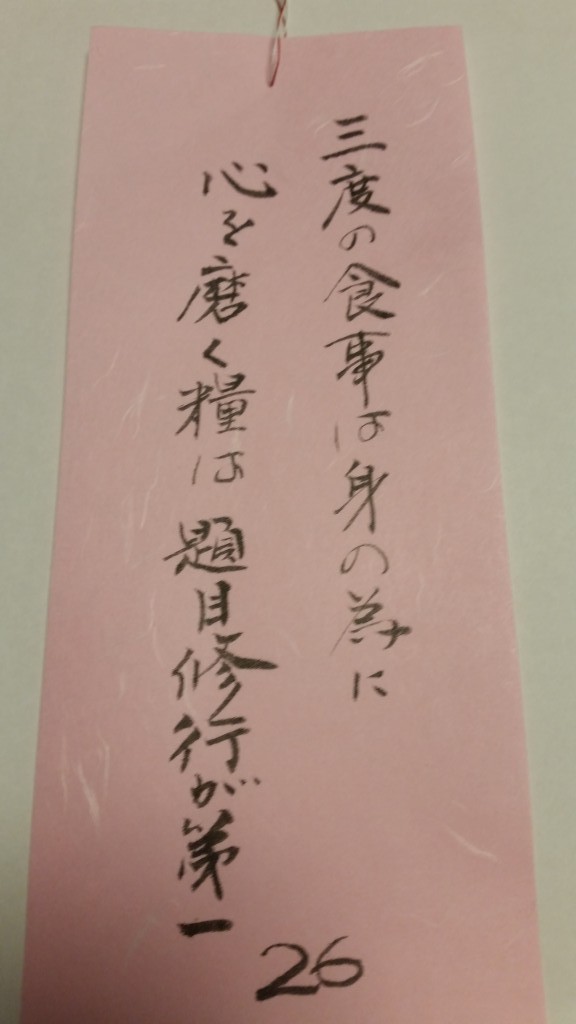 三度の食事は身の為に
心を磨く糧は題目修行が第一
26